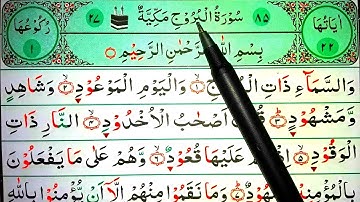 اٰيَاتُهَا ٢٢ ٨٥ سُوْرَةُ الْبُرُوْجِ مَكِّيَّةٌ ٢٧ رُكُوْعُهَا ١
بِسْمِ اللّٰهِ الرَّحْمٰنِ الرَّحِيْمِ
وَالسَّمَآءِ ذَاتِ الْبُرُوْجِ ۙ﴿١﴾ وَالْيَوْمِ الْمَوْعُوْدِ ۙ﴿٢﴾ وَشَاهِدٍ
وَّمَشْهُوْدٍ ؕ﴿٣﴾ قُتِلَ اَصْحٰبُ الْاُخْدُوْدِ ۙ﴿٤﴾ النَّارِ ذَاتِ
الْوَقُوْدِ ۙ﴿٥﴾ اِذْ هُمْ عَلَيْهَا قُعُوْدٌ ۙ﴿٦﴾ وَّهُمْ عَلٰى مَا يَفْعَلُوْنَ
بِالْمُؤْمِنِيْنَ شُهُوْدٌ ؕ﴿٧﴾ وَمَا نَقَمُوْا مِنْهُمْ اِلَّاۤ اَنْ يُّؤْمِنُوْا بِاللّٰهِ